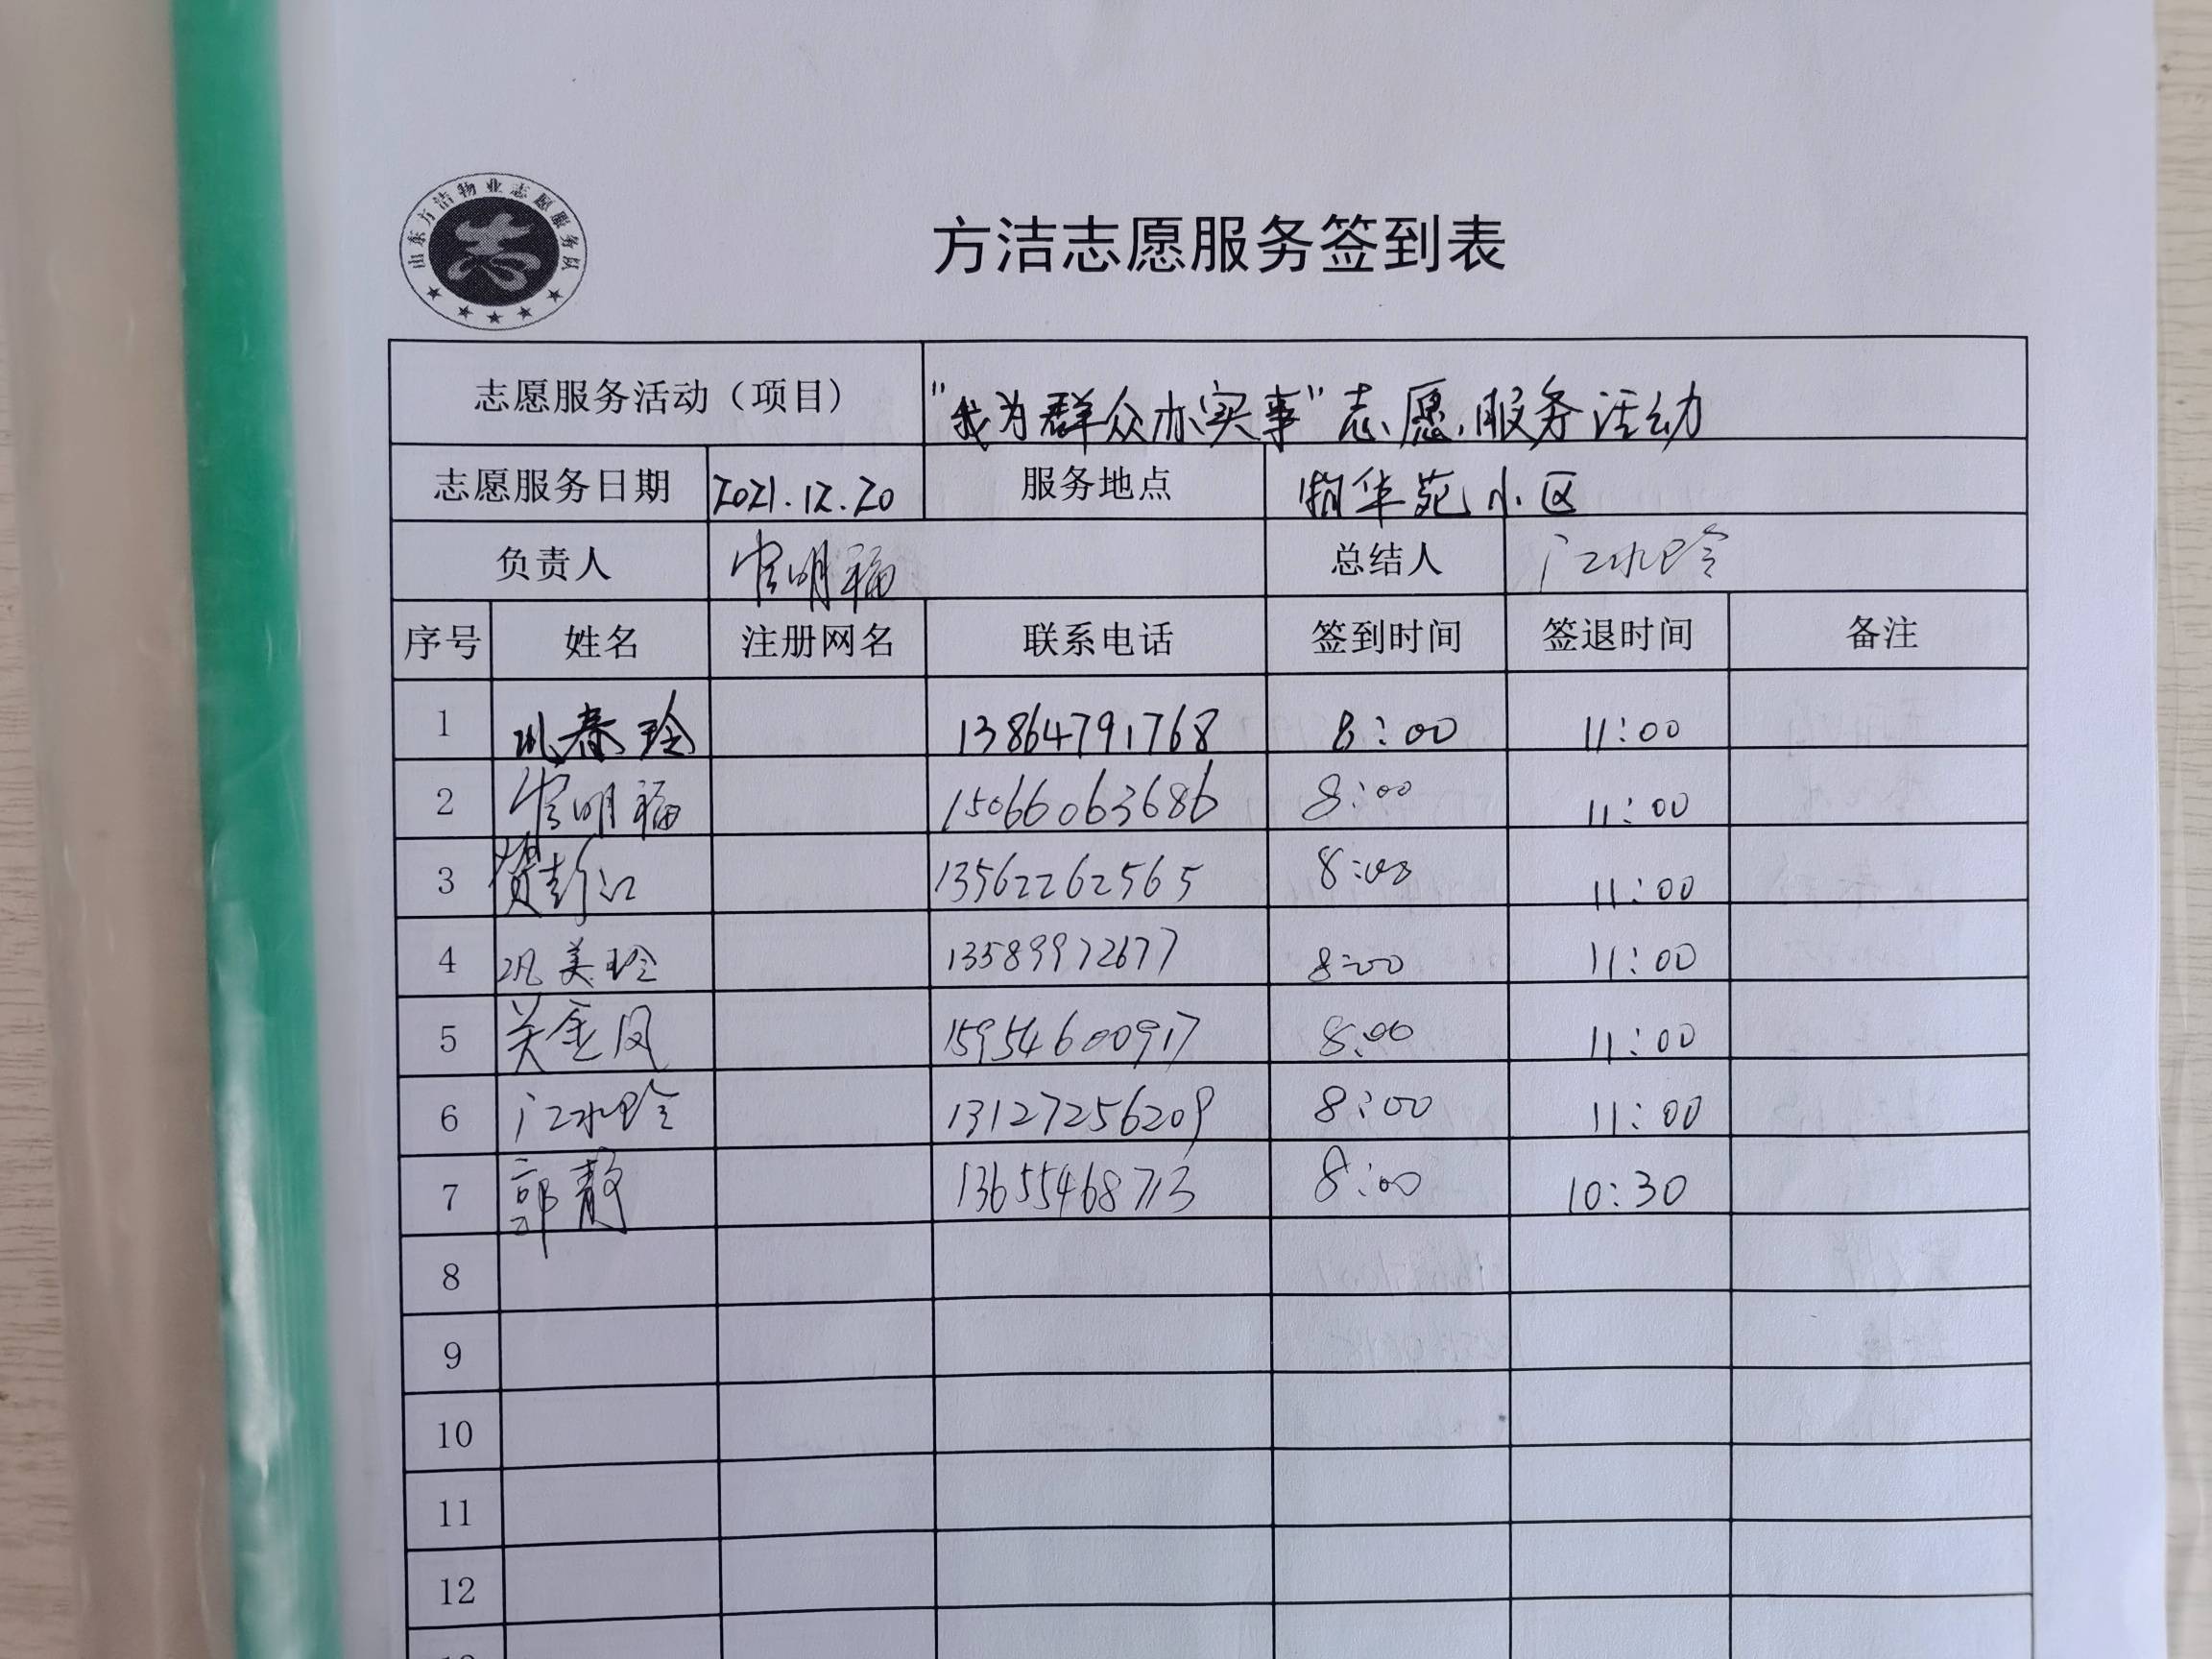 山东方洁物业志愿服务队
方洁志愿服务签到表
志愿服务活动（项目） "我为群众办实事"志愿服务活动
志愿服务日期 2021.12.20 服务地点 华苑小区
负责人 明福 总结人 江水玲
序号 姓名 注册网名 联系电话 签到时间 签退时间 备注
1 巩春玲 13864791768 8:00 11:00
2 明福 15066063686 8:00 11:00
3 贺彭江 13562262565 8:00 11:00
4 巩美玲 13589972677 8:00 11:00
5 关金凤 15954600917 8:00 11:00
6 江水玲 13127256209 8:00 11:00
7 郭静 13655468713 8:00 10:30
8
9
10
11
12